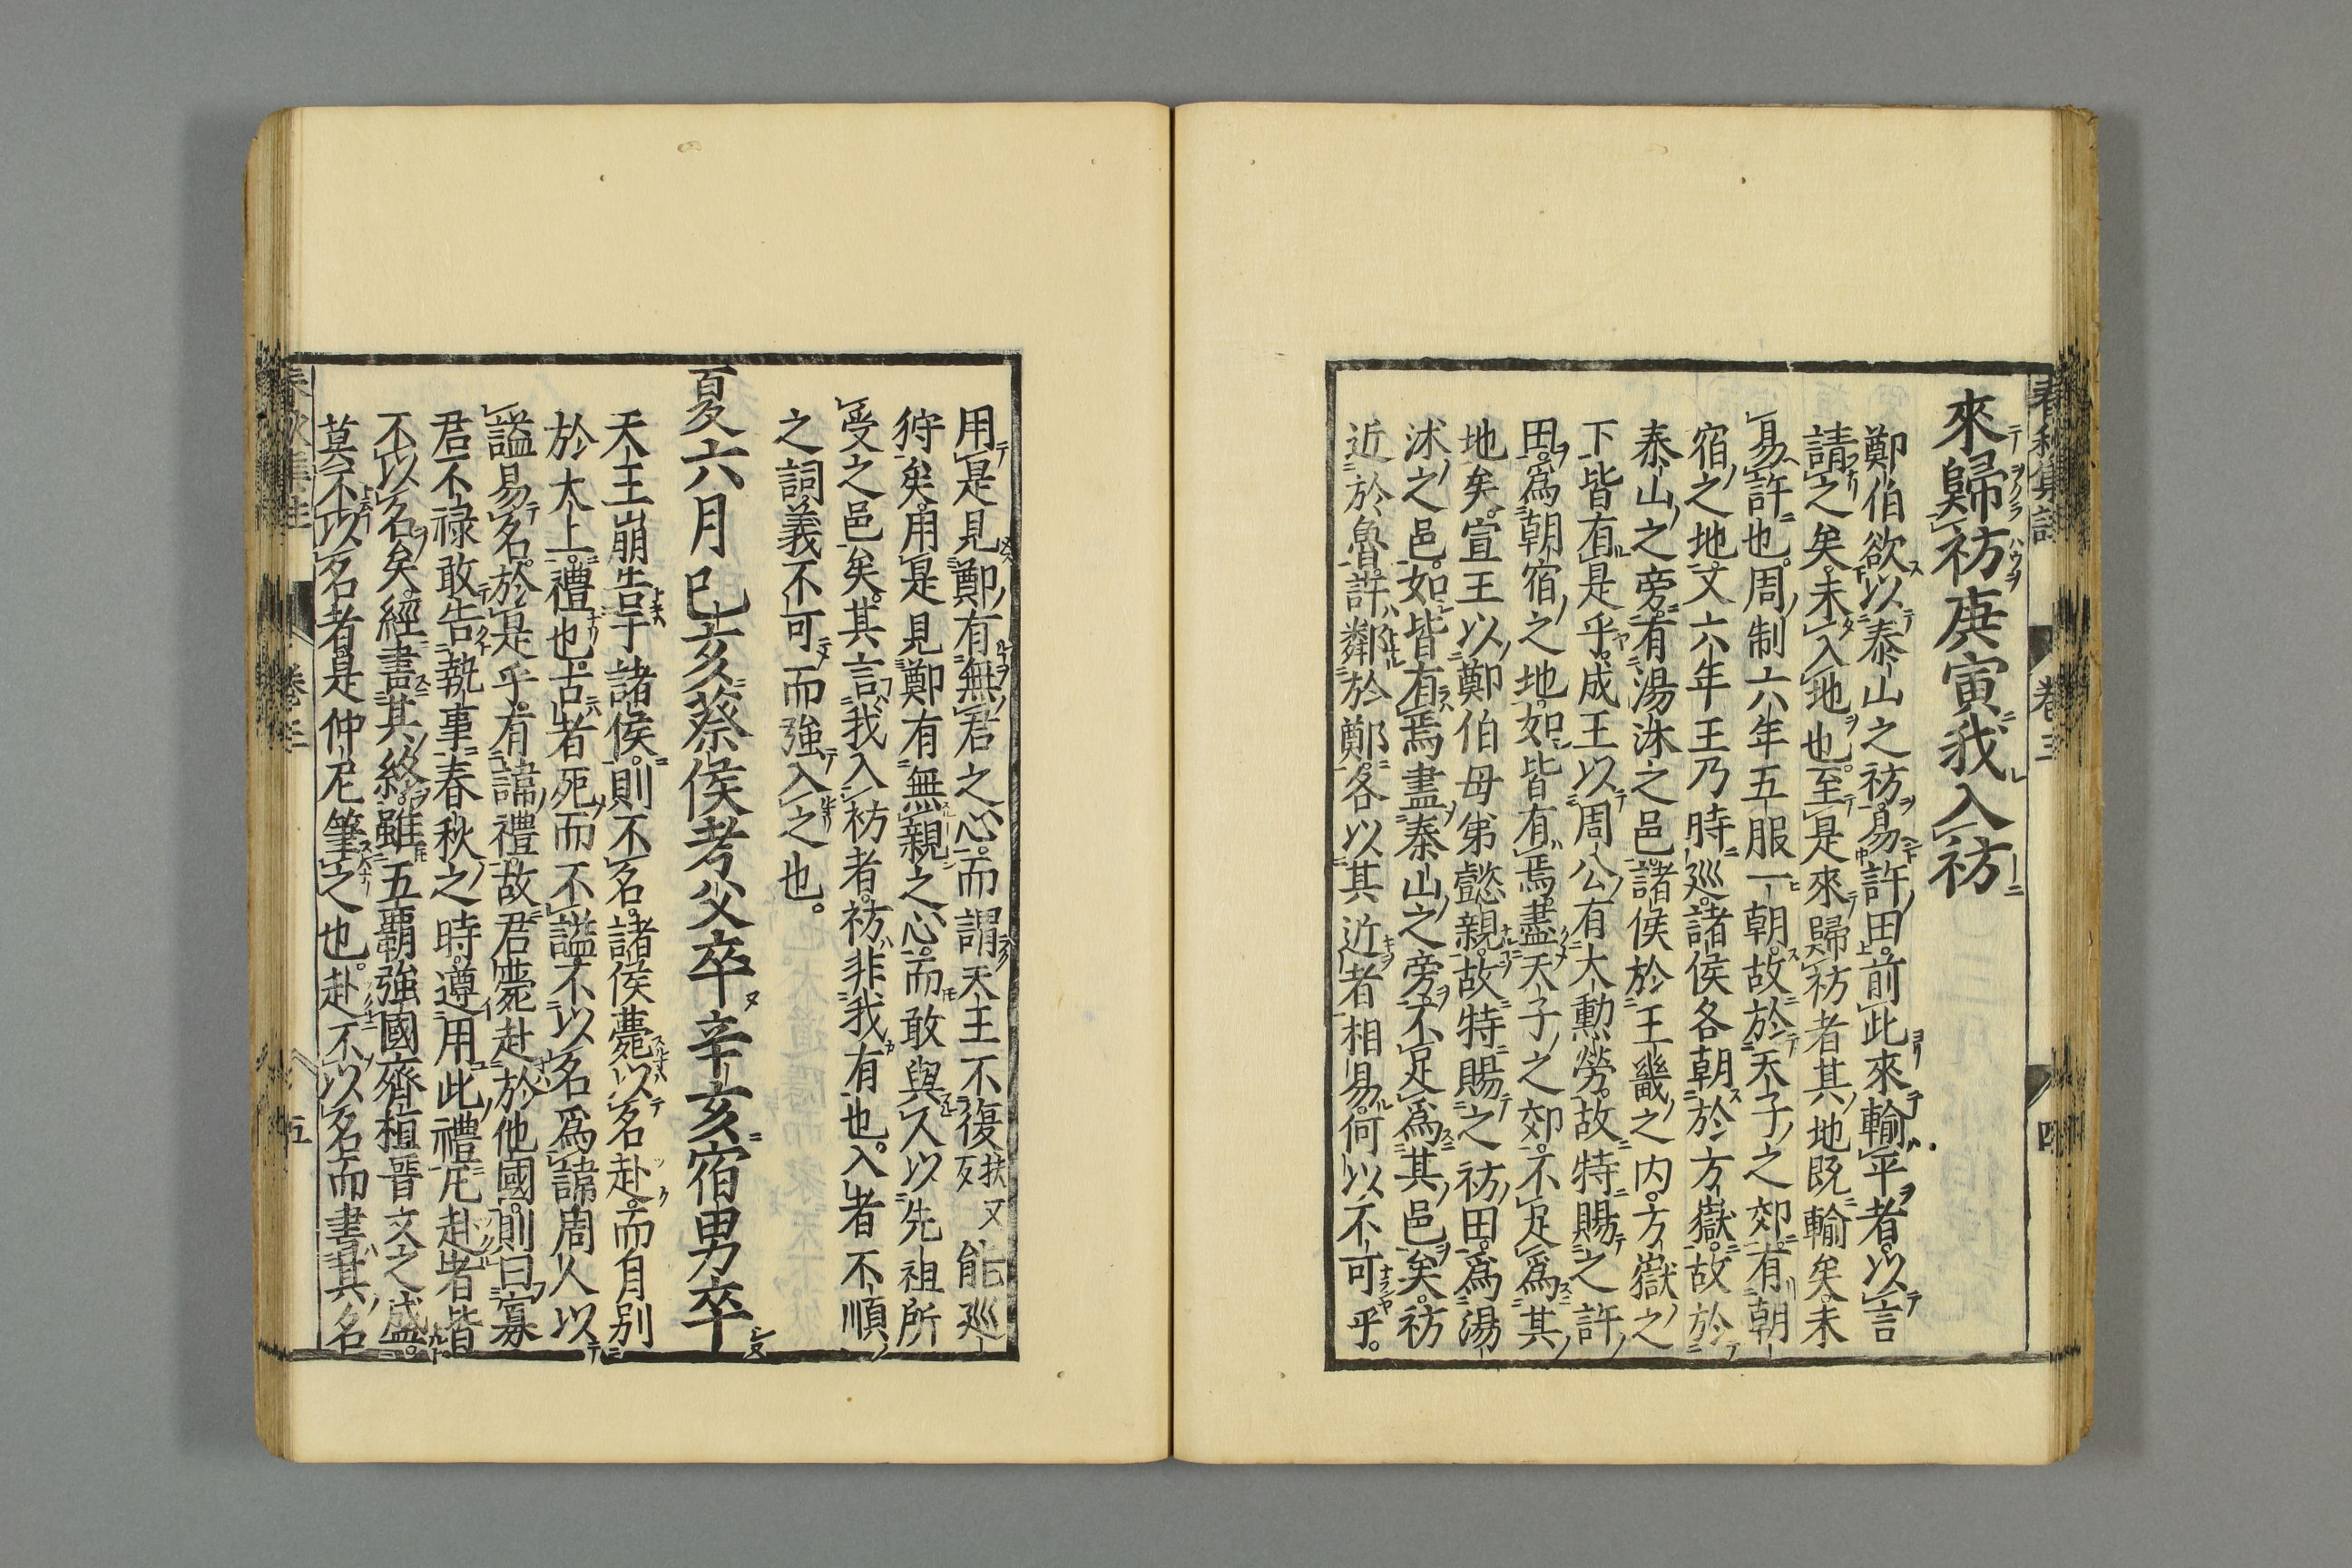 春秋集註 卷三 四
來歸祊庚寅我入祊
鄭伯欲以泰山之祊易許田前此來輸平者以言
請之矣未入地也至是來歸祊者其地既輸矣未
易許也周制六年五服一朝故於天子之郊有朝
宿之地文六年王乃時巡諸侯各朝於方嶽故於
泰山之旁有湯沐之邑諸侯於王畿之内方嶽之
下皆有是乎成王以周公有大勳勞故特賜之許
田爲朝宿之地如皆有焉盡天子之郊不足爲其
地矣宣王以鄭伯母弟懿親故特賜之祊田爲湯
沐之邑如皆有焉盡泰山之旁不足爲其邑矣祊
近於魯許鄰於鄭各以其近者相易何以不可乎
用是見鄭有無君之心而謂天王不復扶又反能巡
狩矣用是見鄭有無親之心而敢與人以先祖所
受之邑矣其言我入祊者祊非我有也入者不順
之詞義不可而強入之也
夏六月己亥蔡侯考父卒辛亥宿男卒
天王崩告于諸侯則不名諸侯薨以名赴而自别
於大上禮也古者死而不謚不以名爲諱周人以
謚易名於是乎有諱禮故君薨赴於他國則曰寡
君不禄敢告執事春秋之時遵用此禮凡赴者皆
不以名矣經書其終雖五覇強國齊桓晉文之盛
莫不以名者是仲尼筆之也赴不以名而書其名
春秋集註 卷三 五